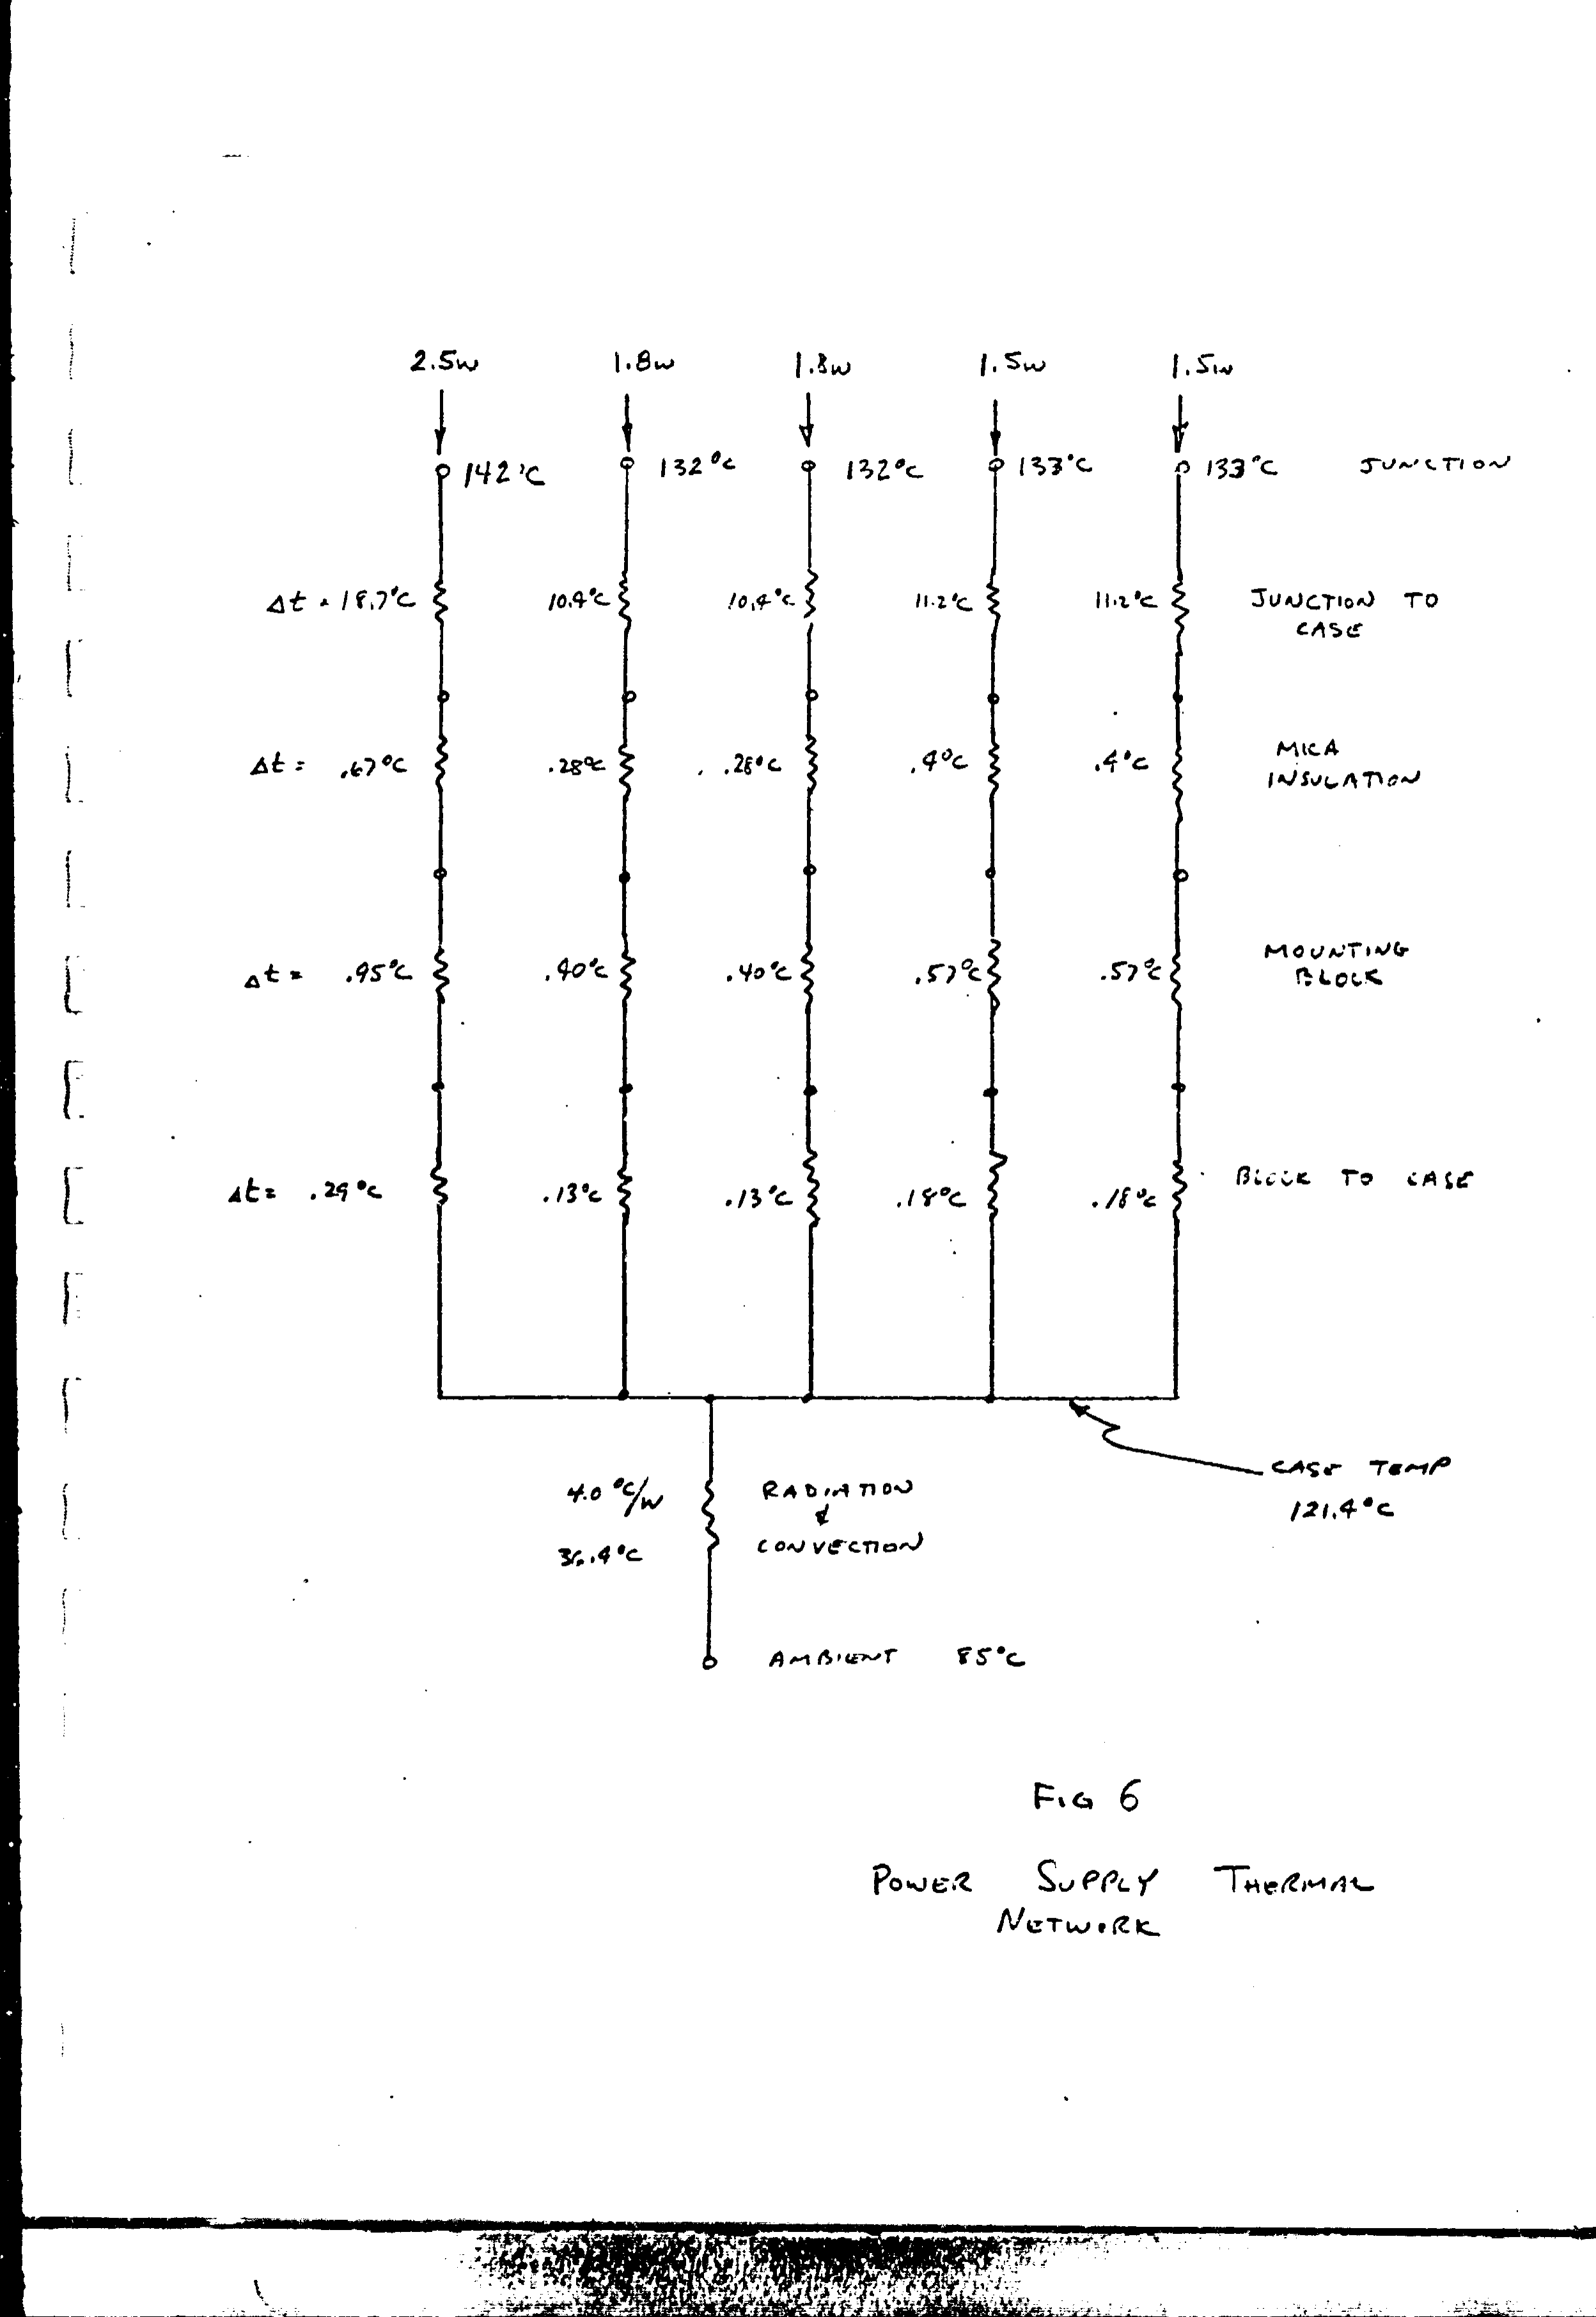 2.5W 1.8W 1.8W 1.5W 1.5W
142°C 132°C 132°C 133°C 133°C JUNCTION
Δt = 18.7°C 10.4°C 10.4°C 11.2°C 11.2°C JUNCTION TO
CASE
Δt = .67°C .28°C .28°C .4°C .4°C MICA
INSULATION
Δt = .95°C .40°C .40°C .57°C .57°C MOUNTING
BLOCK
Δt = .29°C .13°C .13°C .18°C .18°C BLOCK TO CASE
CASE TEMP
121.4°C
4.0 °C/W RADIATION
&
36.4°C CONVECTION
AMBIENT 85°C
FIG 6
POWER SUPPLY THERMAL
NETWORK